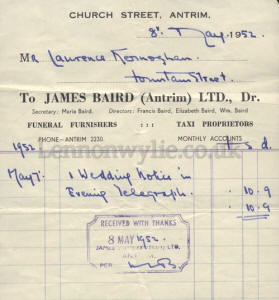 CHURCH STREET, ANTRIM.
8th May, 1952
Mr Lawrence Kernoghan
Fountain Street
To JAMES BAIRD (Antrim) LTD., Dr.
Secretary: Maria Baird. Directors: Francis Baird, Elizabeth Baird, Wm. Baird
FUNERAL FURNISHERS : : : TAXI PROPRIETORS
PHONE—ANTRIM 2230. MONTHLY ACCOUNTS
Lennonwylie.co.uk
1952 £ s d
May 7. 1 Wedding Notice in
Evening Telegraph. 10.9
10.9
RECEIVED WITH THANKS
8 MAY 1952.
JAMES LTD.
PER